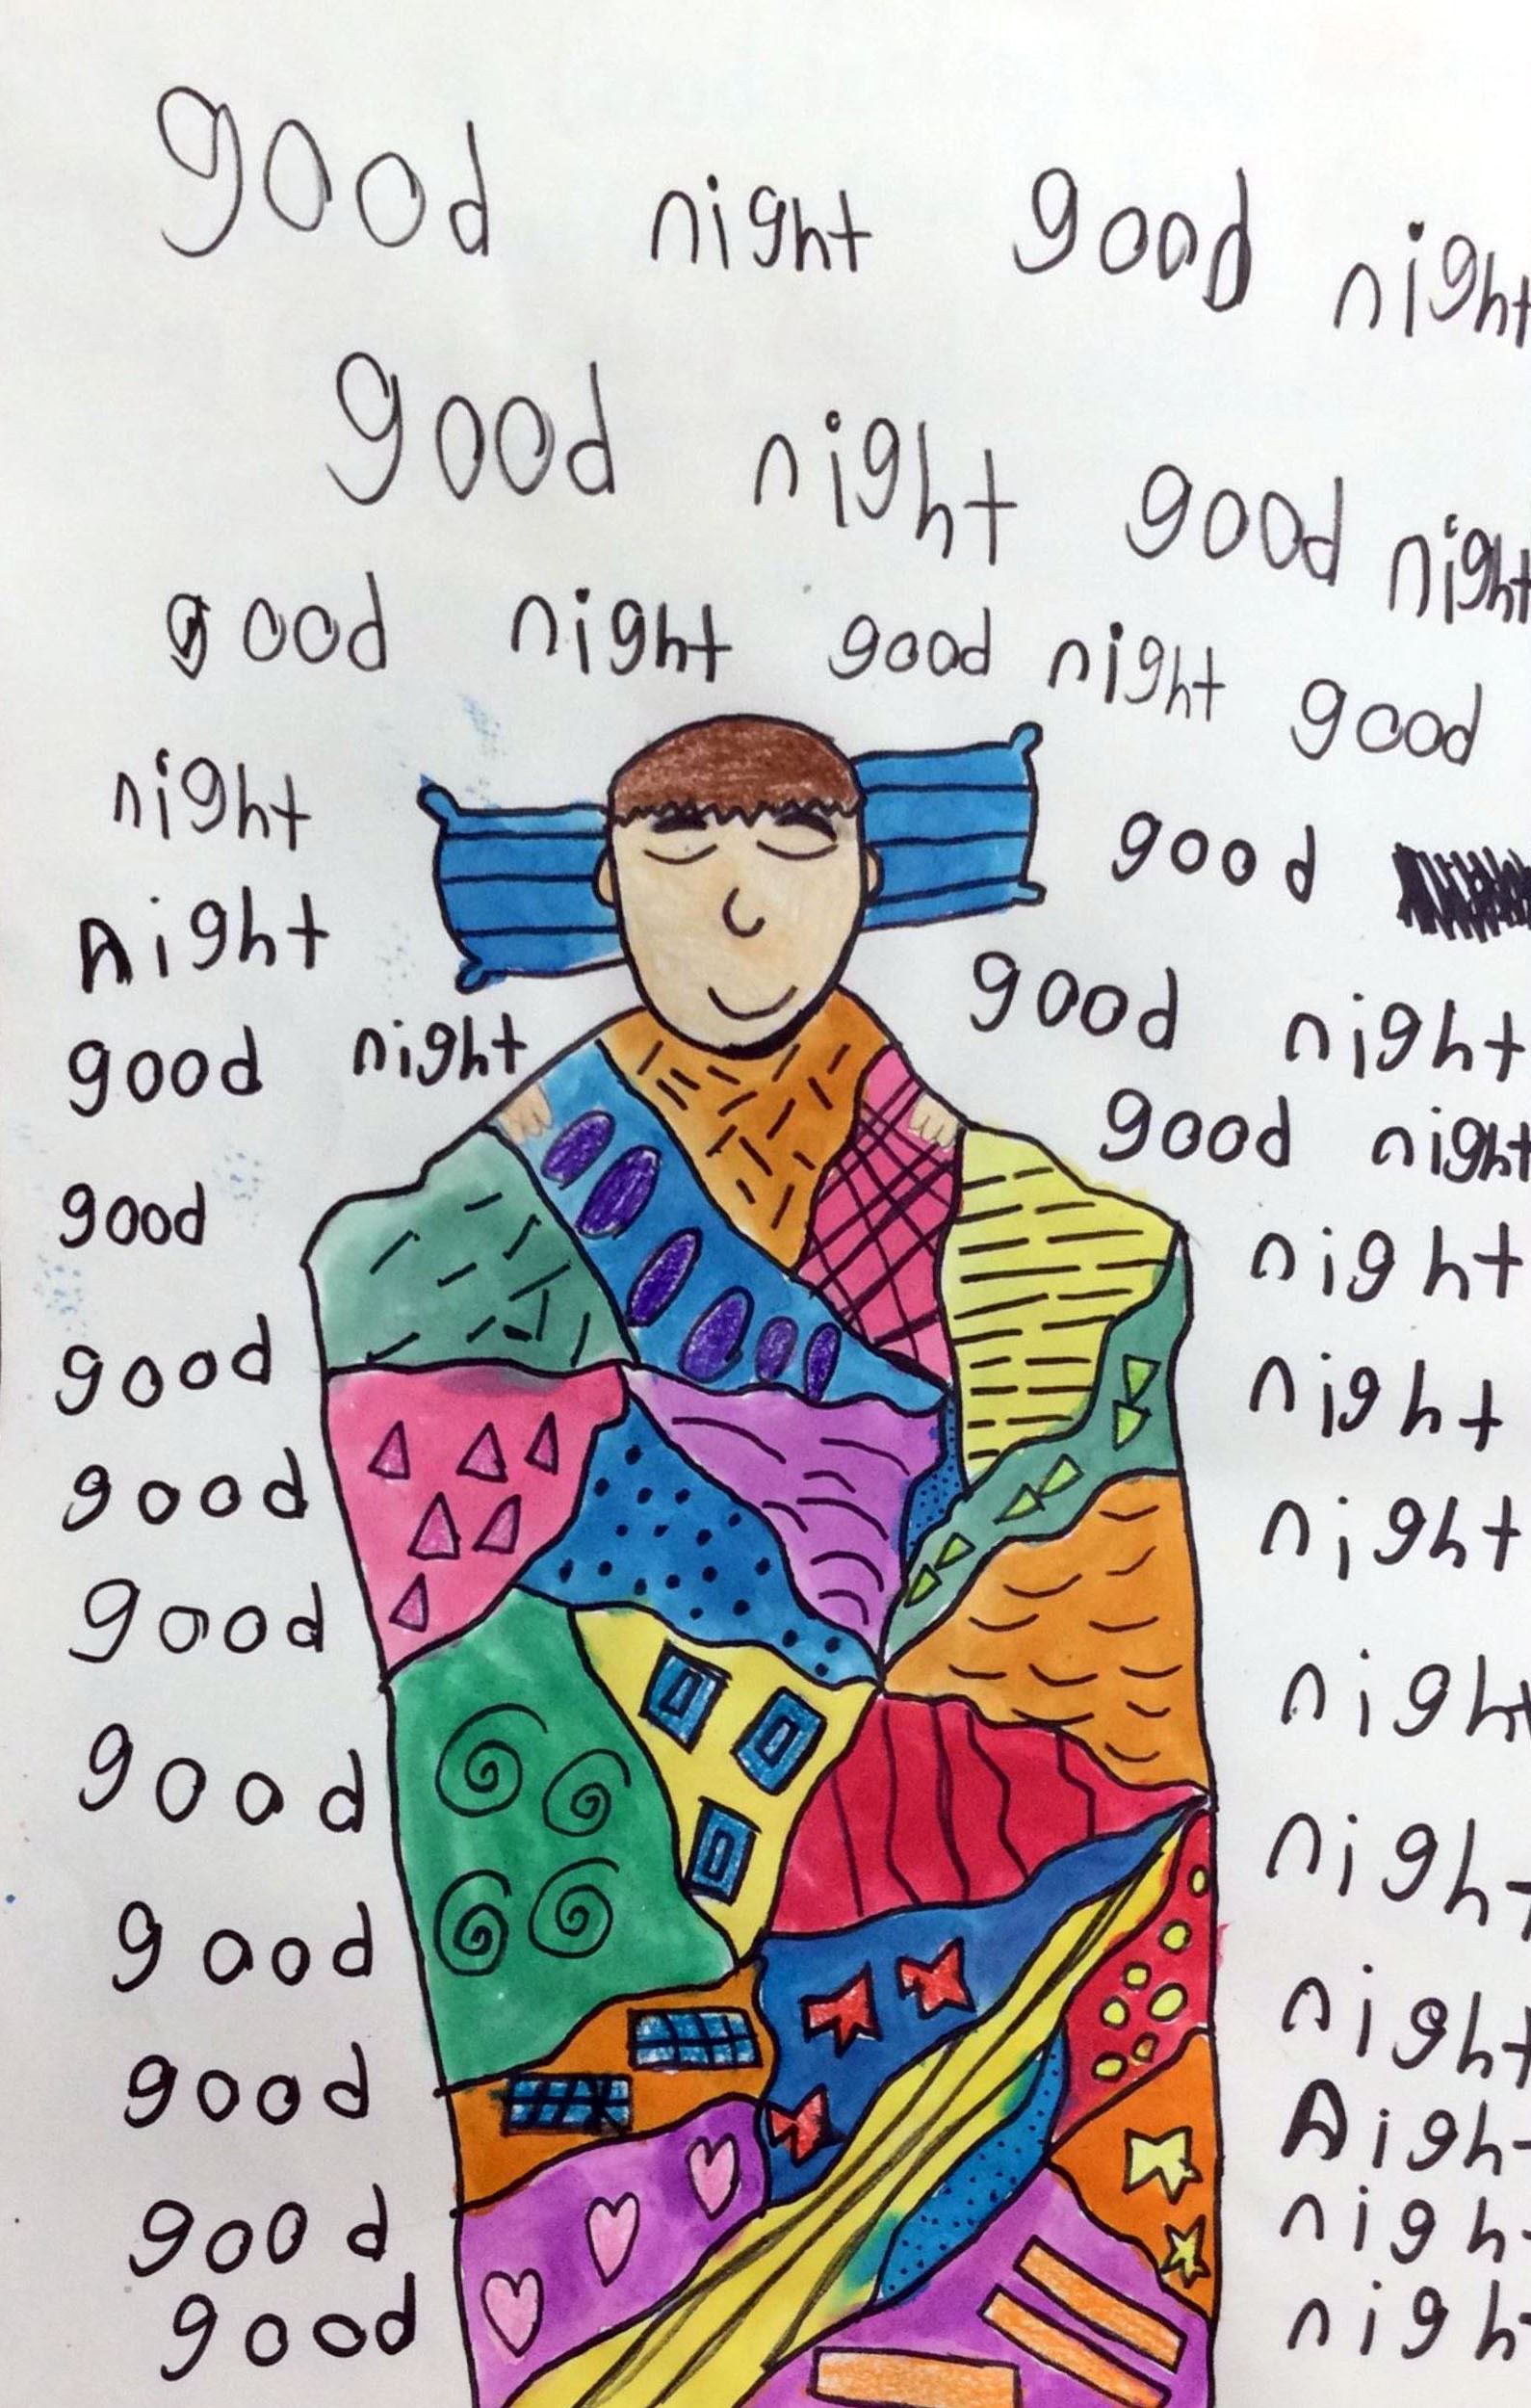 good night good night
good night good night
good night good night good
night good
night good night
good night good night
good night
good night
good night
good night
good night
good night
good night
good nigh
good nigh
good nigh